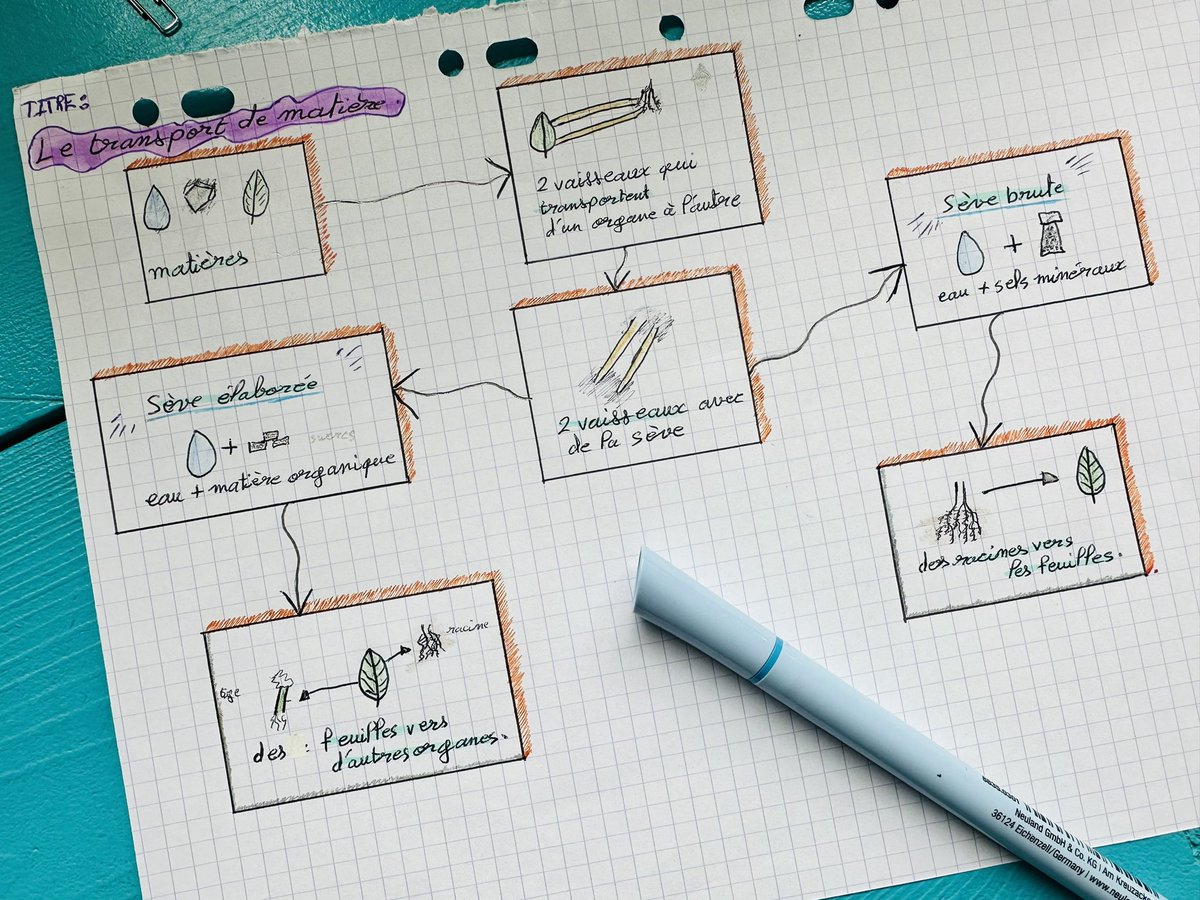 TITRE:
Le transport de matière.
matières
2 vaisseaux qui
transportent
d'un organe à l'autre
Sève brute
+
eau + sels minéraux
2 vaisseaux avec
de la sève
Sève élaborée
+
sucres
eau + matière organique
des racines vers
les feuilles.
racine
tige
des : feuilles vers
d'autres organes.
Neuland GmbH & Co. KG | Am Kreuzacker
36124 Eichenzell/Germany | www.neula